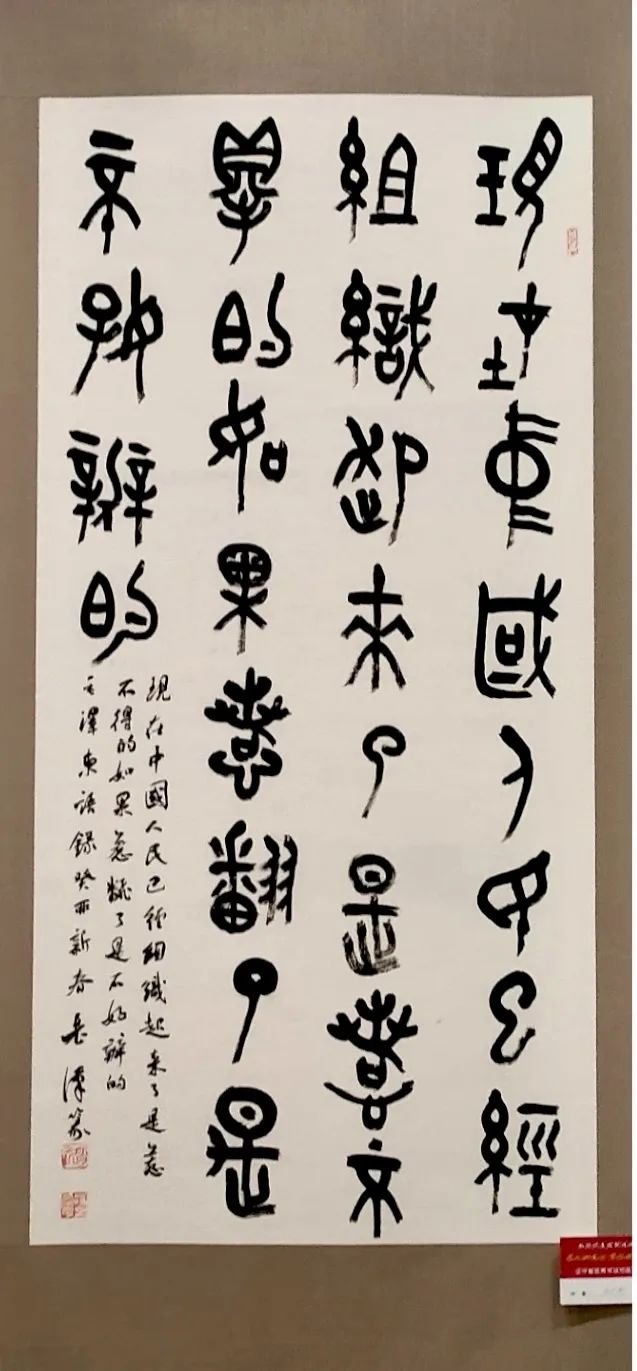 現在中國人民已經
組織起來了是惹不
得的如果惹翻了是
不好辦的
現在中國人民已經組織起來了是惹
不得的如果惹翻了是不好辦的
毛澤東語錄癸酉新春